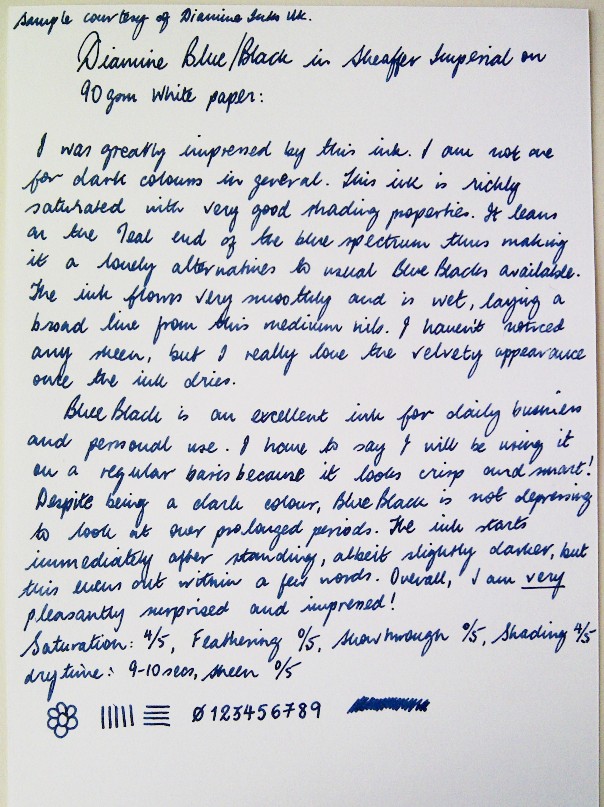 Sample courtesy of Diamine Inks UK.
Diamine Blue/Black in Sheaffer Imperial on
90 gsm White paper:
I was greatly impressed by this ink. I am not one
for dark colours in general. This ink is richly
saturated with very good shading properties. It leans
on the Teal end of the blue spectrum thus making
it a lovely alternatives to usual Blue Blacks available.
The ink flows very smoothly and is wet, laying a
broad line from this medium nib. I haven't noticed
any sheen, but I really love the velvety appearance
once the ink dries.
Blue Black is an excellent ink for daily business
and personal use. I have to say I will be using it
on a regular basis because it looks crisp and smart!
Despite being a dark colour, Blue Black is not depressing
to look at over prolonged periods. The ink starts
immediately after standing, albeit slightly darker, but
this evens out within a few words. Overall, I am very
pleasantly surprised and impressed!
Saturation: 4/5, Feathering 0/5, Showthrough 0/5, Shading 4/5
dry time: 9-10 secs, sheen 0/5
0123456789